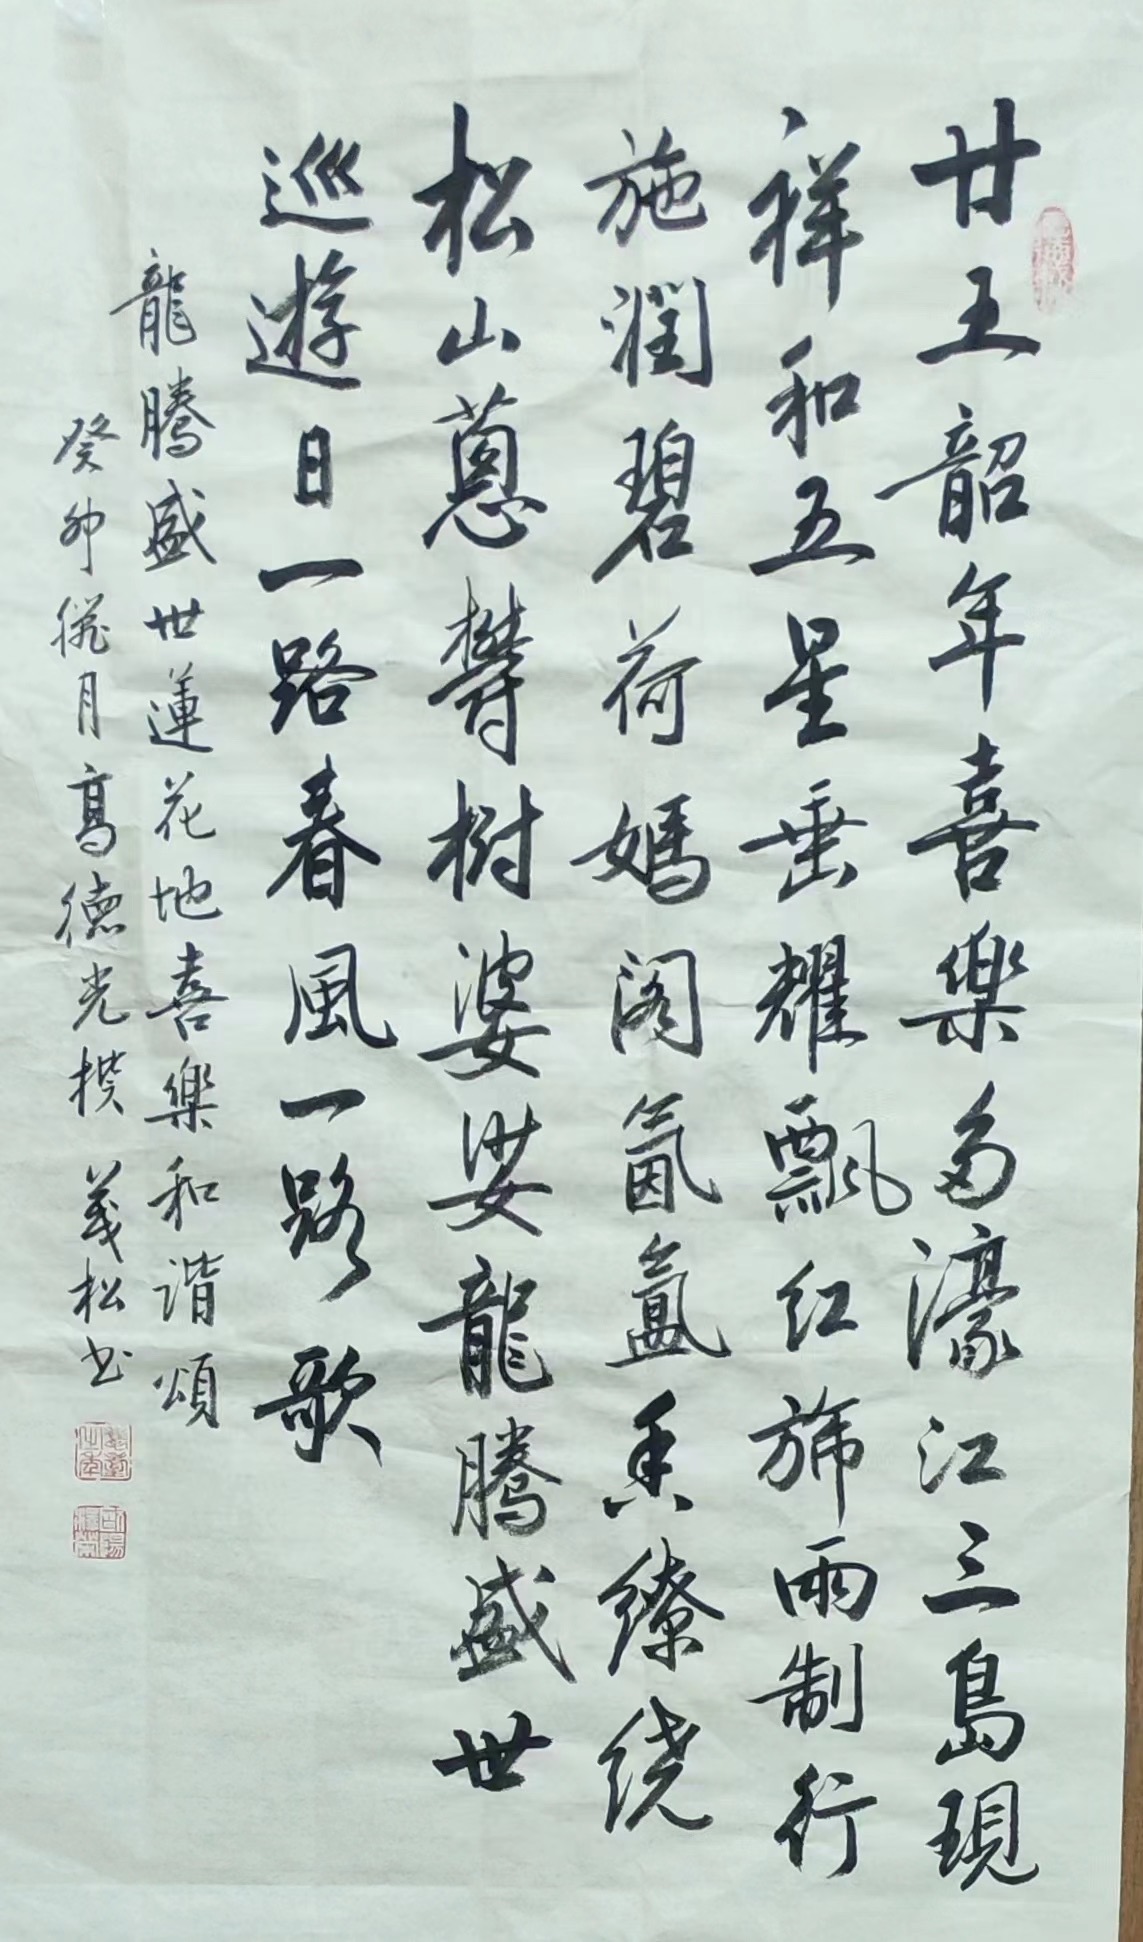 廿五韶年喜樂多濠江三島現
祥和五星垂耀飄紅旆兩制行
施潤碧荷媽阁氤氲香缭绕
松山蔥欝樹婆娑龍腾盛世
巡遊日一路春風一路歌
龍騰盛世蓮花地喜樂和谐頌
癸卯月高德光撰 義松书